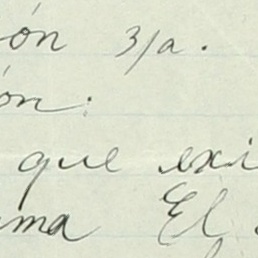 ón 3/a.
ón:
que exi
ma El